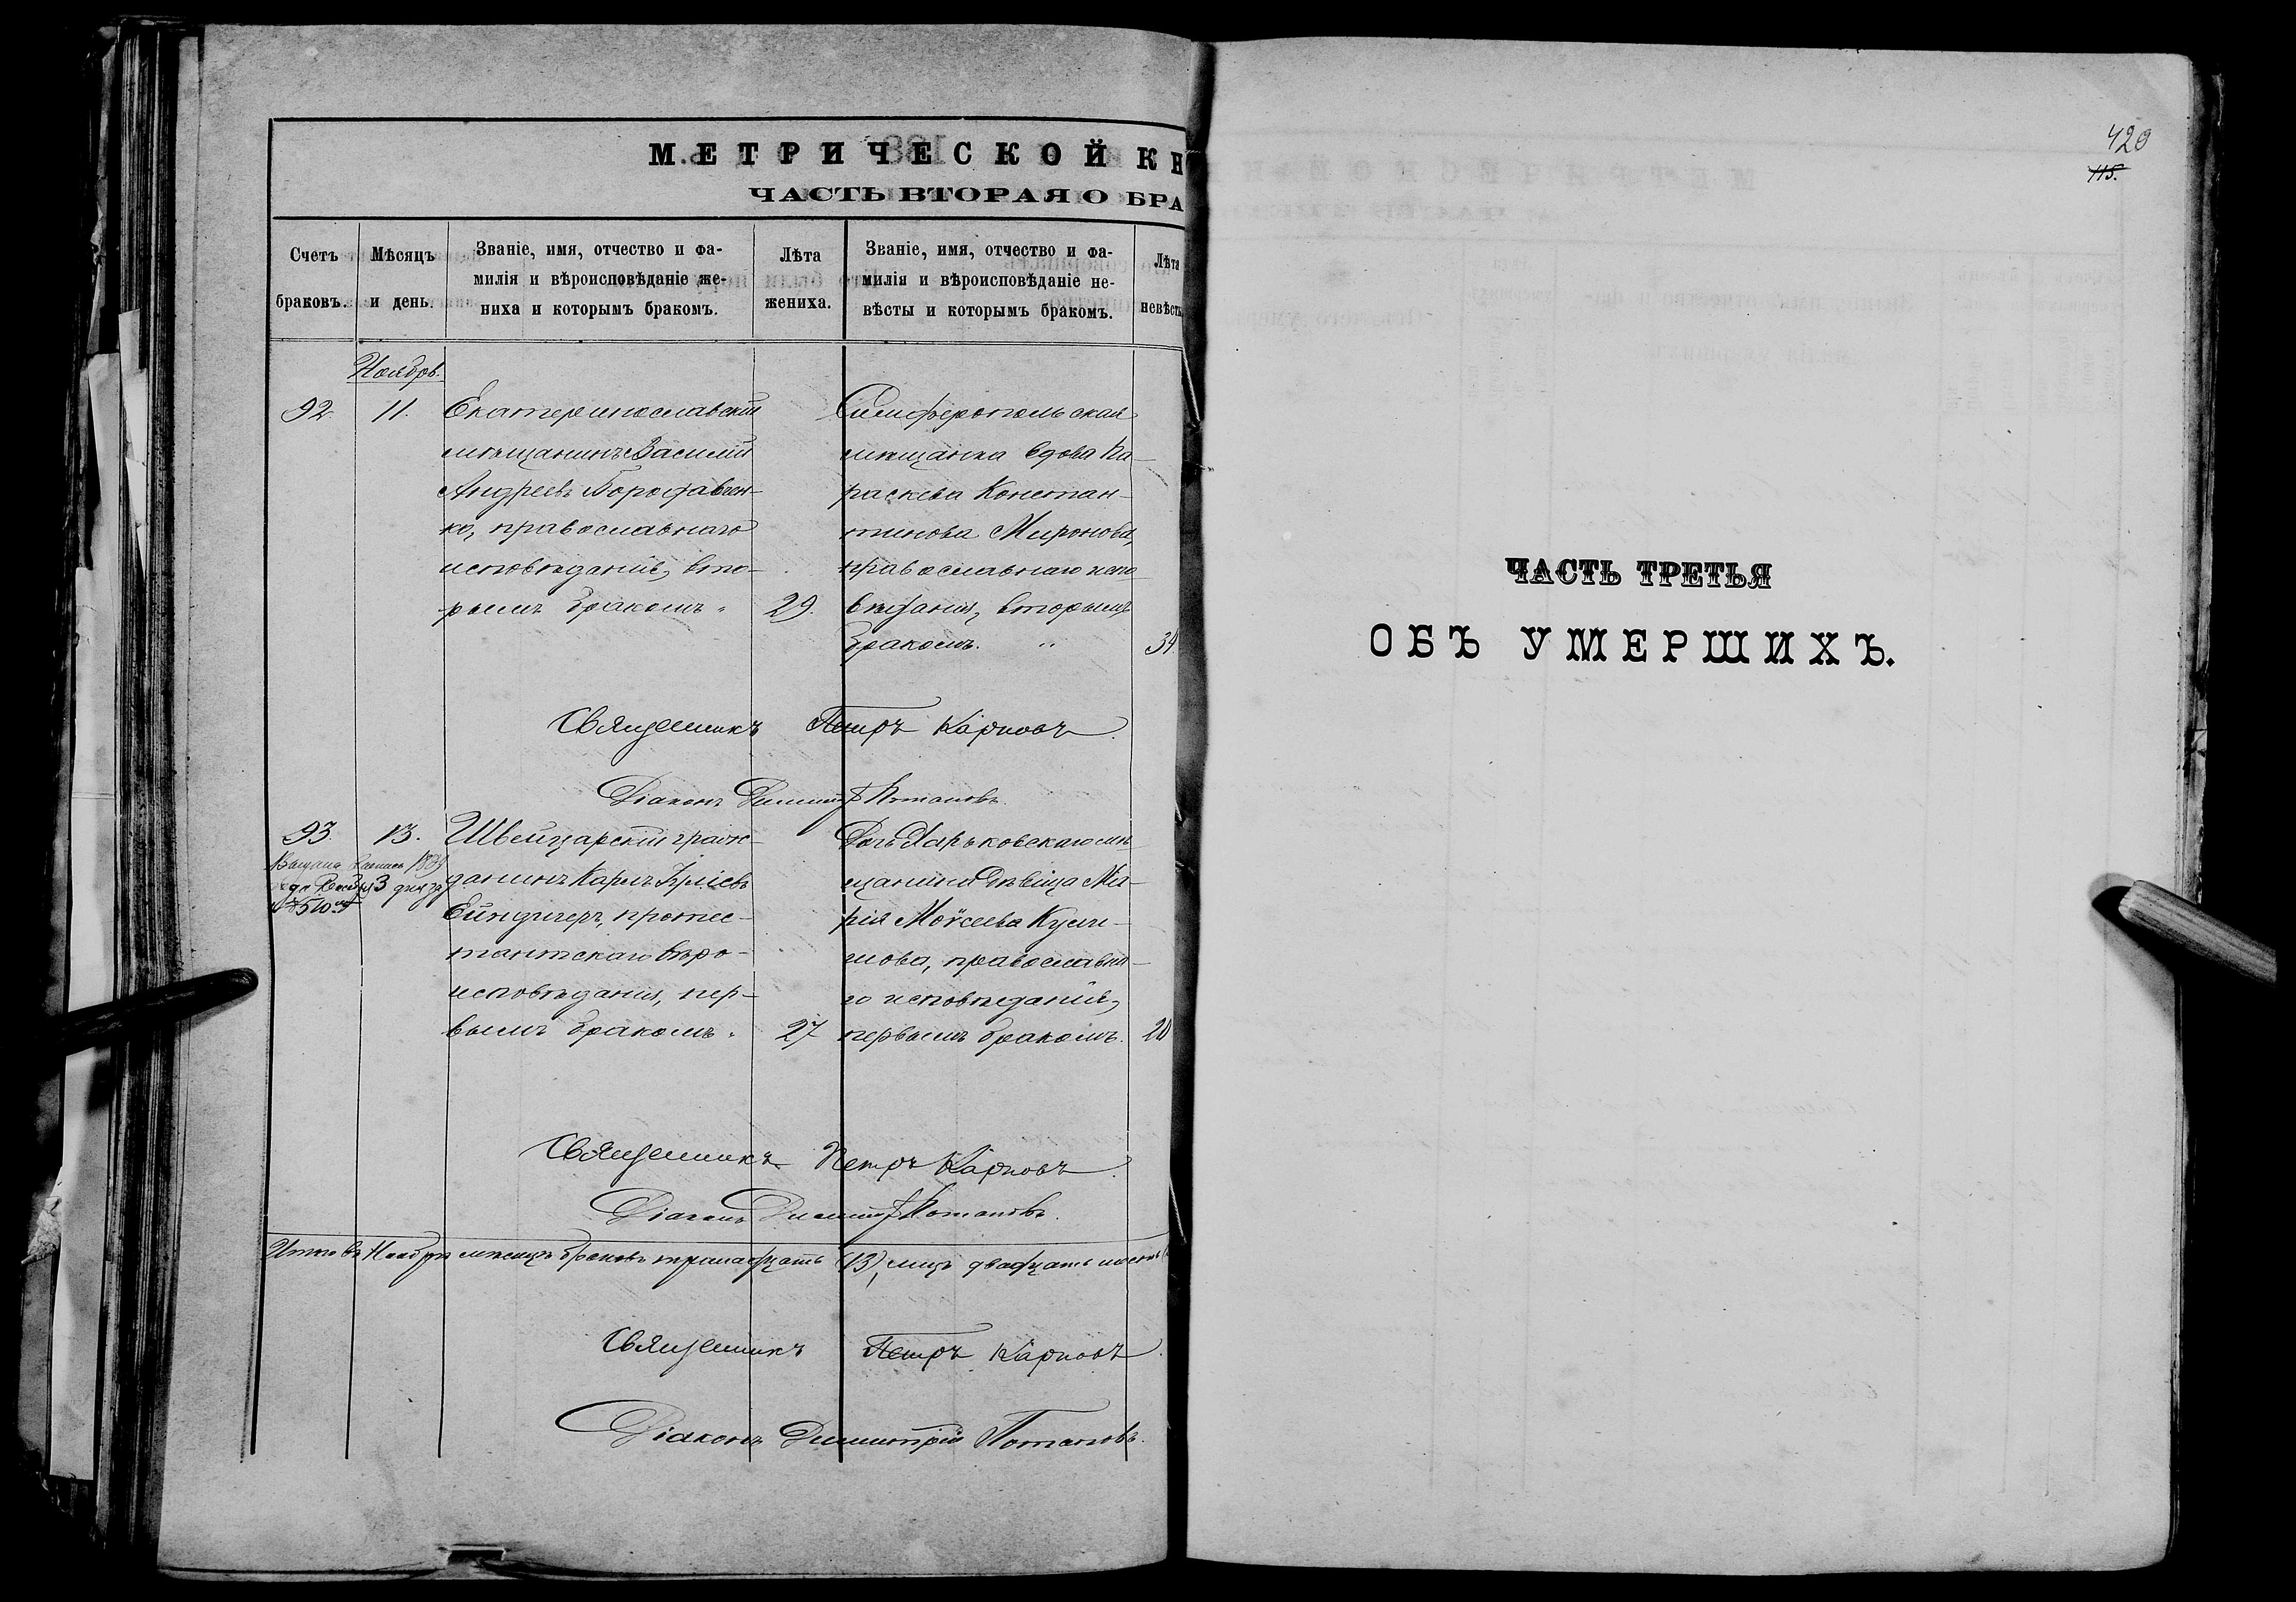 МЕТРИЧЕСКОЙ КН
ЧАСТЬ ВТОРАЯ О БРА
Счетъ браковъ.
Мѣсяцъ и день.
Званіе, имя, отчество и фа-
милія и вѣроисповѣданіе же-
ниха и которымъ бракомъ.
Лѣта жениха.
Званіе, имя, отчество и фа-
милія и вѣроисповѣданіе не-
вѣсты и которымъ бракомъ.
Лѣта невѣсты
Ноябрь.
92.
11.
Екатеринославскій
мѣщанинъ Василій
Андреевъ
ко, православнаго
исповѣданія, вто-
рымъ бракомъ.
29.
Симферопольская
мѣщанка вдова Па-
раскева Констан-
тинова Миронова,
православнаго испо
вѣданія, вторымъ
бракомъ.
34.
Священникъ Петръ Карповъ.
Діаконъ Димитрій Потаповъ.
93.
13.
Швейцарскій граж-
данинъ Карлъ
протес-
тантскаго вѣро-
исповѣданія, пер-
вымъ бракомъ.
27
Дочь Харьковскаго мѣ
щанина дѣвица Ма-
рія Моѵсеева
православна-
го исповѣданія,
первымъ бракомъ.
20
Священникъ Петръ Карповъ.
Діаконъ Димитрій Потаповъ.
Итого въ Ноябрѣ мѣсяцѣ браковъ тринадцать (13), лицъ двадцать шесть
Священникъ Петръ Карповъ.
Діаконъ Димитрій Потаповъ.
420
115.
ЧАСТЬ ТРЕТЬЯ
ОБЪ УМЕРШИХЪ.